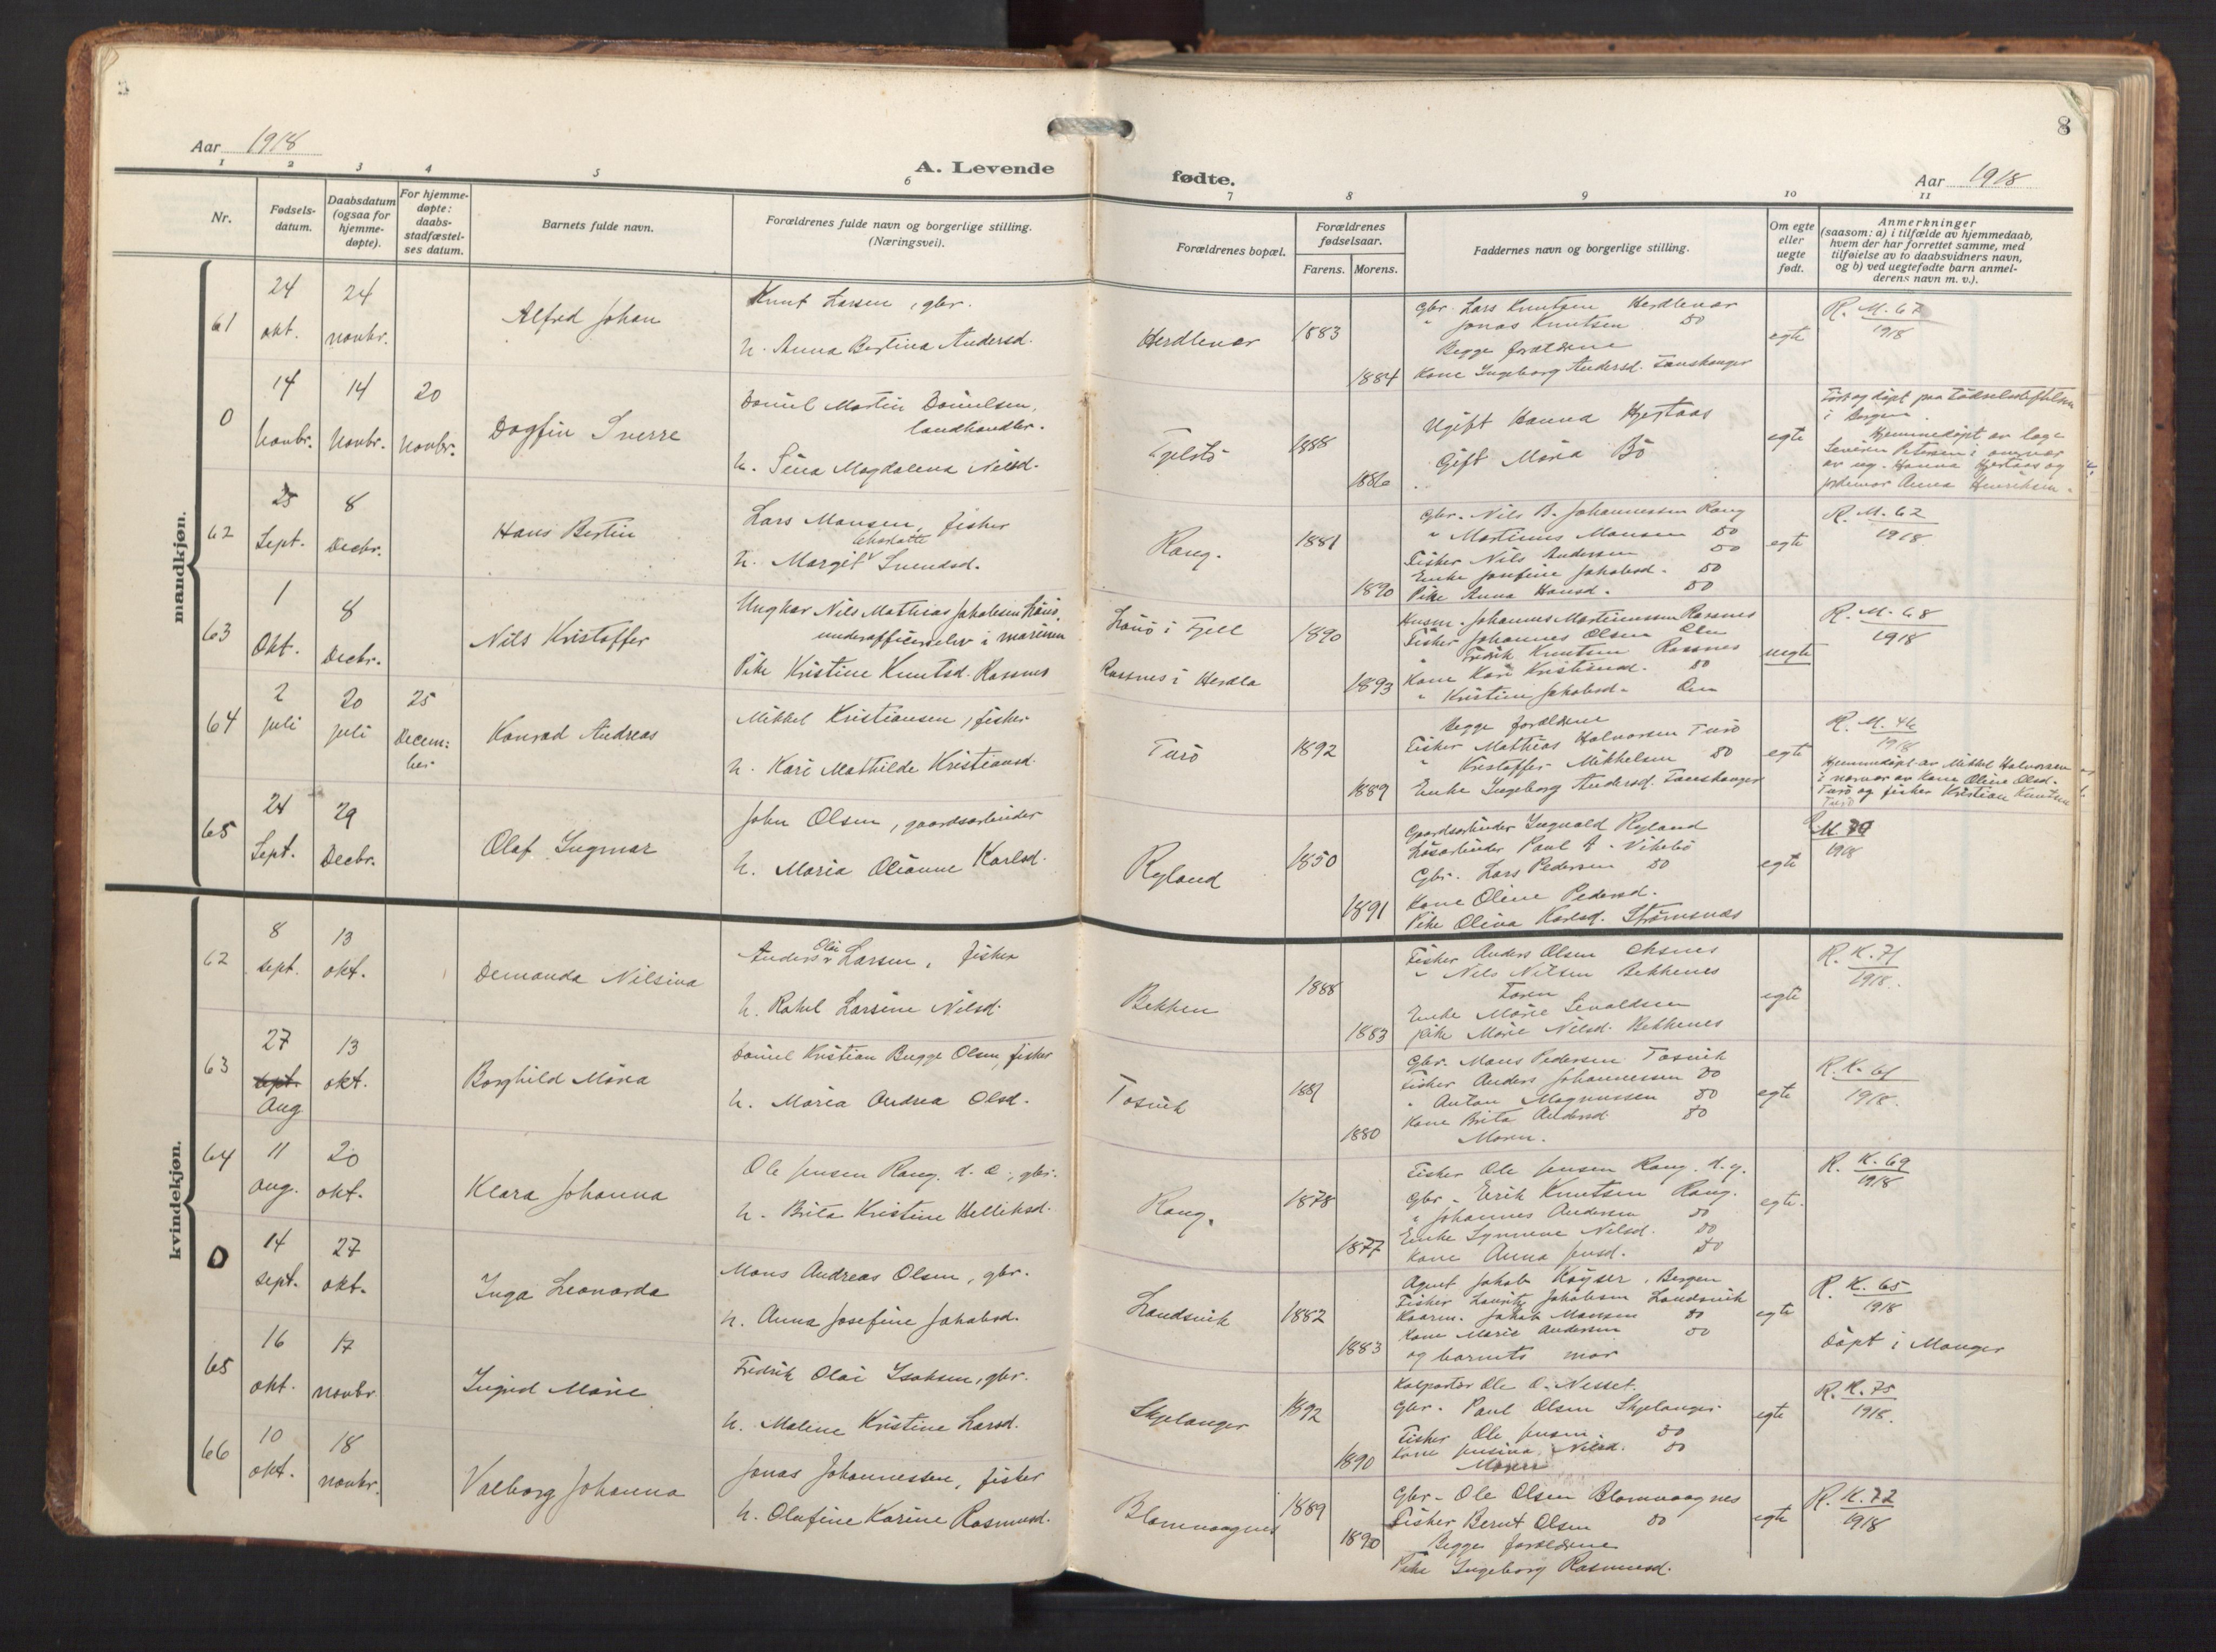 8
Aar 1918
A. Levende
fødte.
Aar 1918
1 2 3 4 5 6
7 8 9 10 11
Nr.
Fødsels-
datum.
Daabsdatum
(ogsaa for
hjemme-
døpte).
For hjemme-
døpte:
daabs-
stadfæstel-
ses datum.
Barnets fulde navn.
Forældrenes fulde navn og borgerlige stilling.
(Næringsvei).
Forældrenes bopæl.
Forældrenes
fødselsaar.
Farens. Morens.
Faddernes navn og borgerlige stilling.
Om egte
eller
uegte
født.
Anmerkninger
(saasom: a) i tilfælde av hjemmedaab,
hvem der har forrettet samme, med
tilføielse av to daabsvidners navn,
og b) ved uegtefødte barn anmel-
derens navn m. v.).
mandkjøn.
61
24
okt.
24
novbr.
Alfred Johan
Knut Larsen, gbr.
h. Anna Bertina Andersd.
Herdlevær
1883
1884
Gbr. Lars Knutsen Herdlevær
" Jonas Knutsen do
Begge forældrene
Kone Ingeborg Andersd.
egte
R. M. 67
1918
0
14
Novbr.
14
Novbr.
20
Novbr.
Dagfin Sverre
Daniel Martin Danielsen,
landhandler.
h. Sina Magdalena Nilsd.
Tjelstø
1888
1886
Ugift Hanna Hjertaas
Gift Maria Bø
egte
Født og døpt paa Fødselsstiftelsen
i Bergen.
Hjemmedøpt av læge
Severin Petersen i
av ug. Hanna Hjertaas og
jordemor Anna Henriksen.
62
25
Sept.
8
Decbr.
Hans Bertin
Lars Monsen, fisker
Charlotte
h. Margit v Svendsd.
Rong.
1881
1890
Gbr. Nils B. Johannessen Rong
" Martinus Monsen do
Fisker Nils Andersen do
Enke Josefine Jakobsd. do
Pike Anna Hansd. do
egte
R. M. 62
1918
63
1
Okt.
8
Decbr.
Nils Kristoffer
Ungkar Nils Mathias Jakobsen
underofficerselev i marinen
Pike Kristine Knutsd. Rossnes
i Fjell
Rossnes i Herdla
1890
1893
Husm. Johannes Martinussen Rossnes
Fisker Johannes Olsen
" Fredrik Knutsen Rossnes
Kone Kari Kristiansd. do
" Kristine Jakobsd.
uegte
R. M. 68
1918
64
2
juli
20
juli
25
Decem=
ber
Konrad Andreas
Mikkel Kristiansen, fisker
h. Kari Mathilde Kristiansd.
Turø
1892
1889
Begge forældrene
Fisker Mathias Halvorsen Turø
" Kristoffer Mikkelsen do
Enke Ingeborg Andersd.
egte
R. M. 46
1918
Hjemmedøpt av Mikkel Halvorsen
i nærvær av kone Oline Olsd.
Turø og fisker Kristian Knutsen
Turø
65
24
Sept.
29
Decbr.
Olaf Ingmar
John Olsen, gaardsarbeider
h. Maria Olianne Karlsd.
Ryland
1850
1891
Gaardsarbeider Ingvald Ryland
Løsarbeider Paul A. Vikebø
Gbr. Lars Pedersen do
Kone Oline Pedersd.
Pike Olina Karlsd. Strømsnes
egte
M. 70
1918
kvindekjøn.
62
8
sept.
13
okt.
Demanda Nilsina
Olai
Anders v Larsen, fisker
h. Rakel Larsine Nilsd.
Bekken
1888
1883
Fisker Anders Olsen
" Nils Nilsen Bekkenes
Faren
Enke Marie Sevaldsen
Pike Marie Nilsd. Bekkenes
egte
R. K. 71
1918.
63
27
sept.
Aug
13
okt.
Borghild Maria
Daniel Kristian Bugge Olsen, fisker
h. Maria Andrea Olsd.
Tosvik
1881
1880
Gbr. Mons Pedersen Tosvik
Fisker Anders Johannessen do
" Anton Magnussen do
Kone Brita Andersd. do
Moren.
egte
R. K. 61
1918.
64
11
aug.
20
okt.
Klara Johanna
Ole Jensen Rong. d. e., gbr.
h. Brita Kristine Helliksd.
Rong.
1878
1877
Fisker Ole Jensen Rong. d. y.
Gbr. Eirik Knutsen Rong.
" Johannes Andersen do
Enke Synneve Nilsd. do
Kone Anna Jensd. do
egte.
R. K. 69
1918
0
14
sept.
27
okt.
Inga Leonarda
Mons Andreas Olsen, gbr.
h. Anna Josefine Jakobsd.
Landsvik
1882
1883
Agent Jakob Køyser, Bergen
Fisker Lauritz Jakobsen Landsvik
Jakob Monsen do
Kone Marie Andersen do
og barnets mor
egte
R. K. 65
1918
Døpt i Manger
65
16
okt.
17
novbr
Ingrid Marie
Fredrik Olai Isaksen, gbr.
h. Maline Kristine Larsd.
Skjelanger
1892
1890
Kolportør Ole O. Nesset.
Gbr. Paul Olsen Skjelanger
Fisker Ole Jensen. do
Kone Jensina Nilsd. do
Moren
egte
R. K. 75
1918.
66
10
okt.
18
novbr.
Valborg Johanna
Jonas Johannessen, fisker
h. Olufine Karine Rasmusd.
Blomvaagnes
1889
1890
Gbr. Ole Olsen Blomvaagnes
Fisker Bernt Olsen do
Begge forældrene
Pike Ingeborg Rasmusd.
egte
R. K. 72
1918